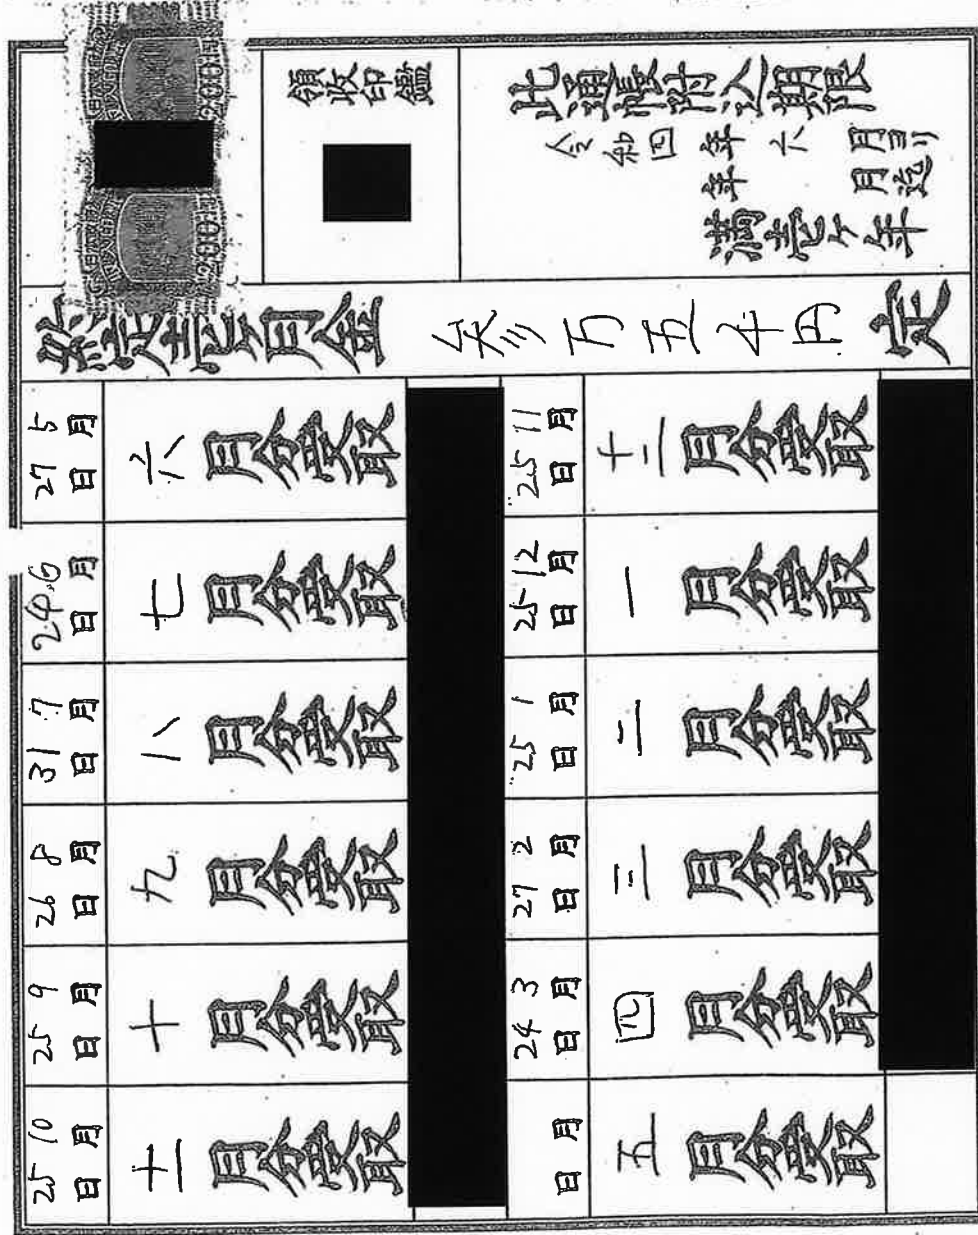 此通帳附込期限
令和四年六月ヨリ
年 月迄
満壱ケ年
領收印鑑
200円
200円
月金 参万五千円 定
5月27日 六月分受取
6月24日 七月分受取
7月31日 八月分受取
8月26日 九月分受取
9月25日 十月分受取
10月25日 十一月分受取
11月25日 十二月分受取
12月25日 一月分受取
1月25日 二月分受取
2月27日 三月分受取
3月24日 四月分受取
月 日 五月分受取